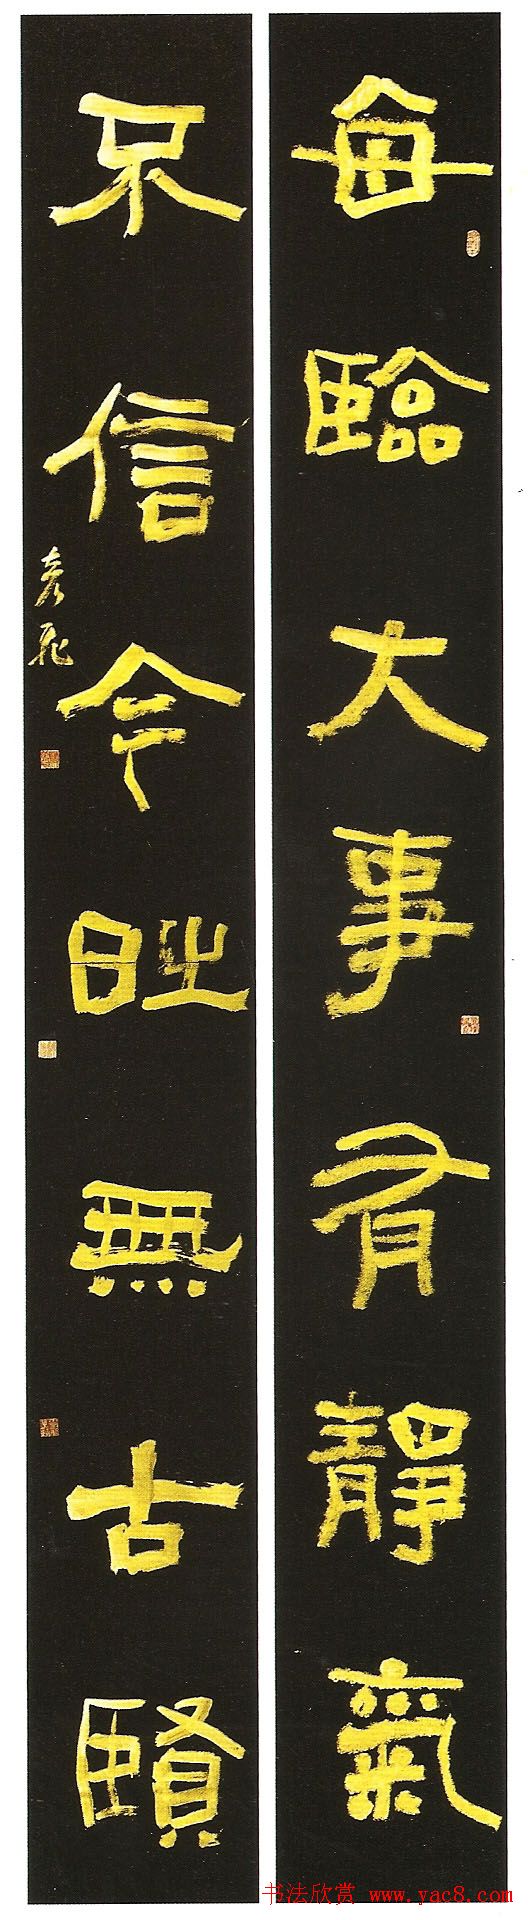 每臨大事有靜氣
不信今時無古賢
书法欣赏 www.yac8.com